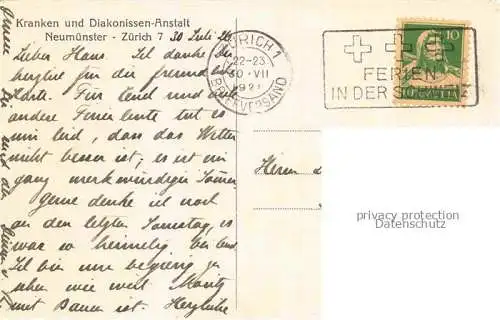 Kranken und Diakonissen-Anstalt
Neumünster - Zürich 7 30 Juli 26.
Lieber Hans. Ich danke dir
herzlich für die freundliche
Karte. Für Euch und viele
andere Ferienleute tut es
mir leid, dass das Wetter
nicht besser ist; es ist ein
ganz merkwürdiger Sommer
gerne denke ich noch
an den letzten Samstag, es
war so heimelig bei Euch.
Ich bin nur begierig zu
sehen wie weit Moritz
mit Bauen ist. Herzliche
ZÜRICH 1
22-23
30 VII
BRIEFVERSAND
FERIEN
IN DER SCHWEIZ
10
HELVETIA
Herrn
privacy protection
Datenschutz